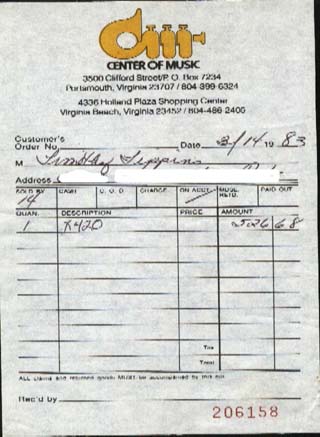 CENTER OF MUSIC
3500 Clifford Street/P.O. Box 7234
Portsmouth, Virginia 23707 / 804-399-6324
4336 Holland Plaza Shopping Center
Virginia Beach, Virginia 23452 / 804-486-2405
Customer's
Order No. Date 3/14 1983
M
Address
SOLD BY CASH C.O.D. CHARGE ON ACCT. MDSE. RETD. PAID OUT
14
QUAN. DESCRIPTION PRICE AMOUNT
1 X420 526 68
Tax
Total
ALL claims and returned goods MUST be accompanied by this bill
Rec'd by
206158